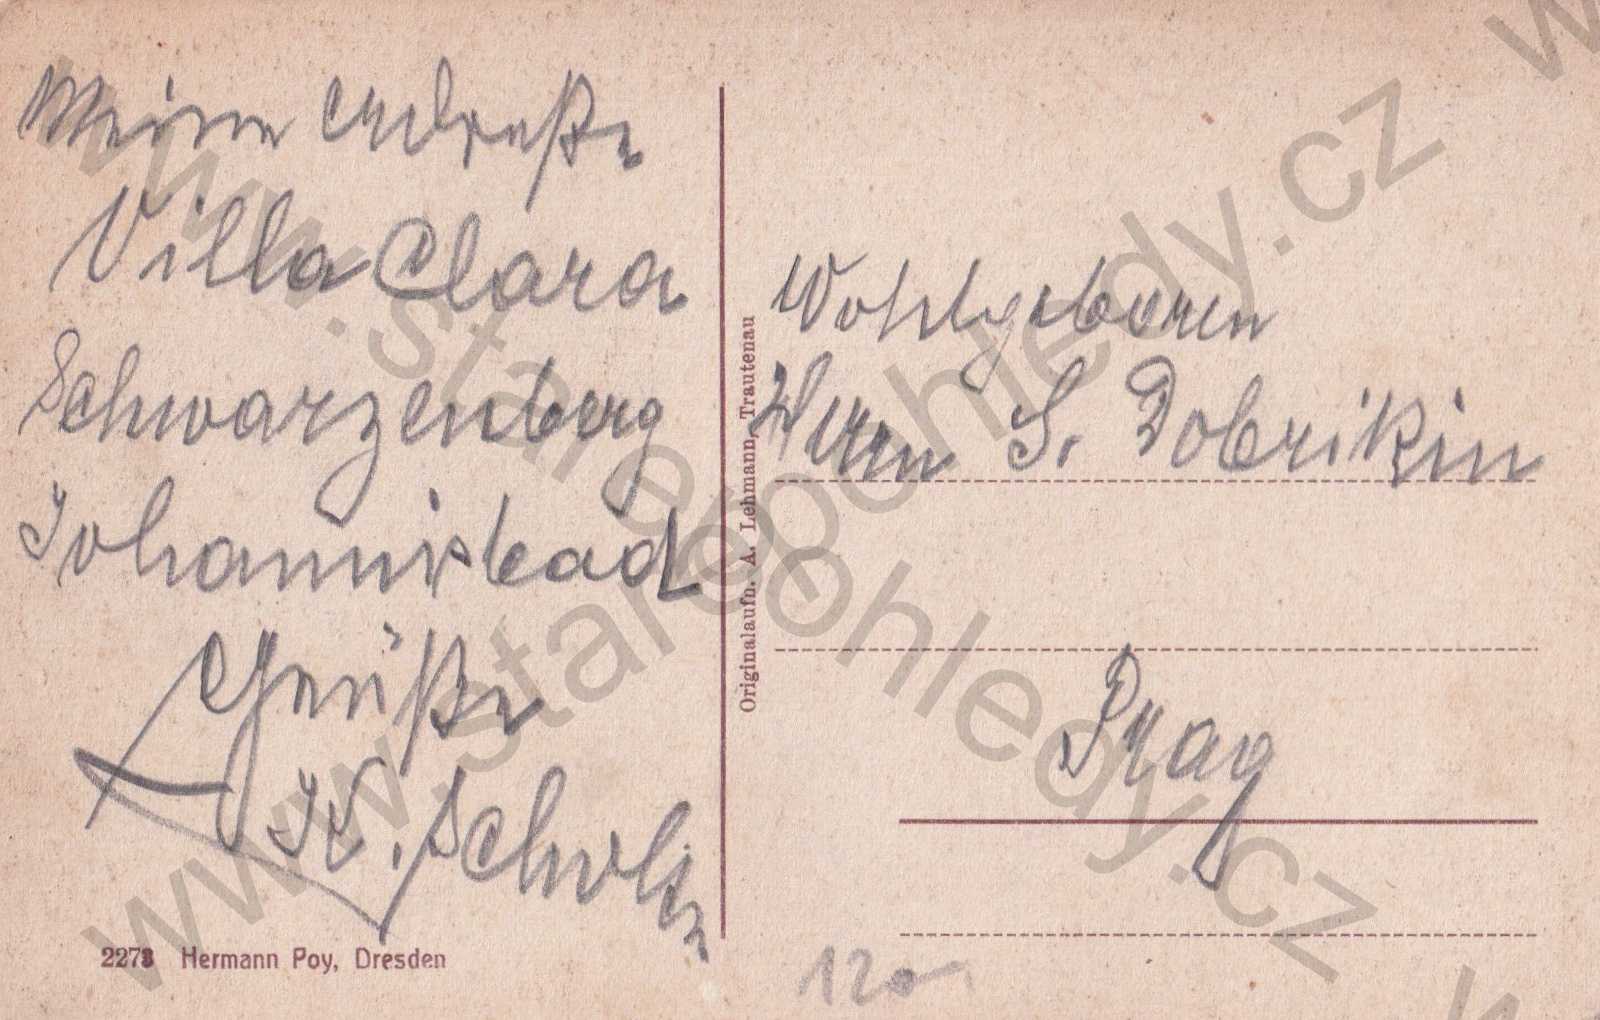 Meine Adreße
Villa Clara
Schwarzenberg
Johannisbad
Grüße
K.
Wohlgeboren
Herrn S. Dobrikin
Prag
Originalaufn. A. Lehmann, Trautenau
2273 Hermann Poy, Dresden
120.-
www.starepohledy.cz
www.starepohledy.cz